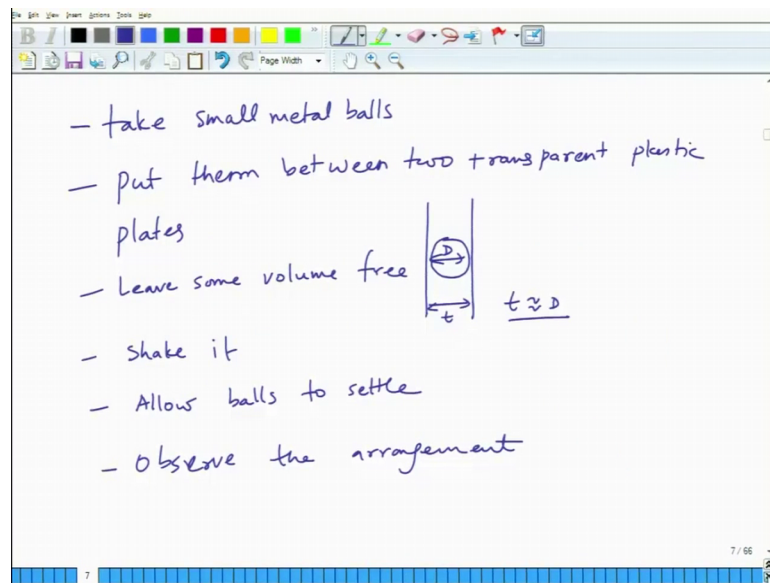 File Edit View Insert Actions Tools Help
B I
Page Width
- take small metal balls
- put therm between two transparent plastic
plates
- Leave some volume free
D
t
t ≈ D
- Shake it
- Allow balls to settle
- Observe the arrangement
7 / 66
7